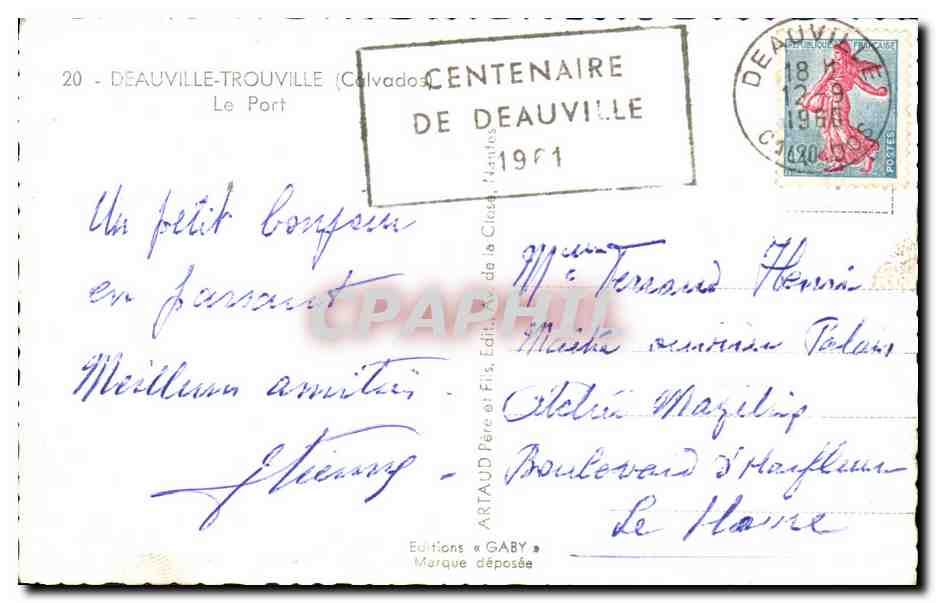 20 - DEAUVILLE-TROUVILLE (Calvados)
Le Port
CENTENAIRE
DE DEAUVILLE
1961
DEAUVILLE
18 H
12-9
1960
CALVADOS
REPUBLIQUE FRANÇAISE
POSTES
0,20
Un petit bonjour
en passant
Meilleures amitiés.
Etienne
ARTAUD Père et Fils, Edit., Av. de la Close, Nantes
Mr Henri
Palais
Boulevard d'Harfleur
Le Havre
Editions « GABY »
Marque déposée
CPAPHIL